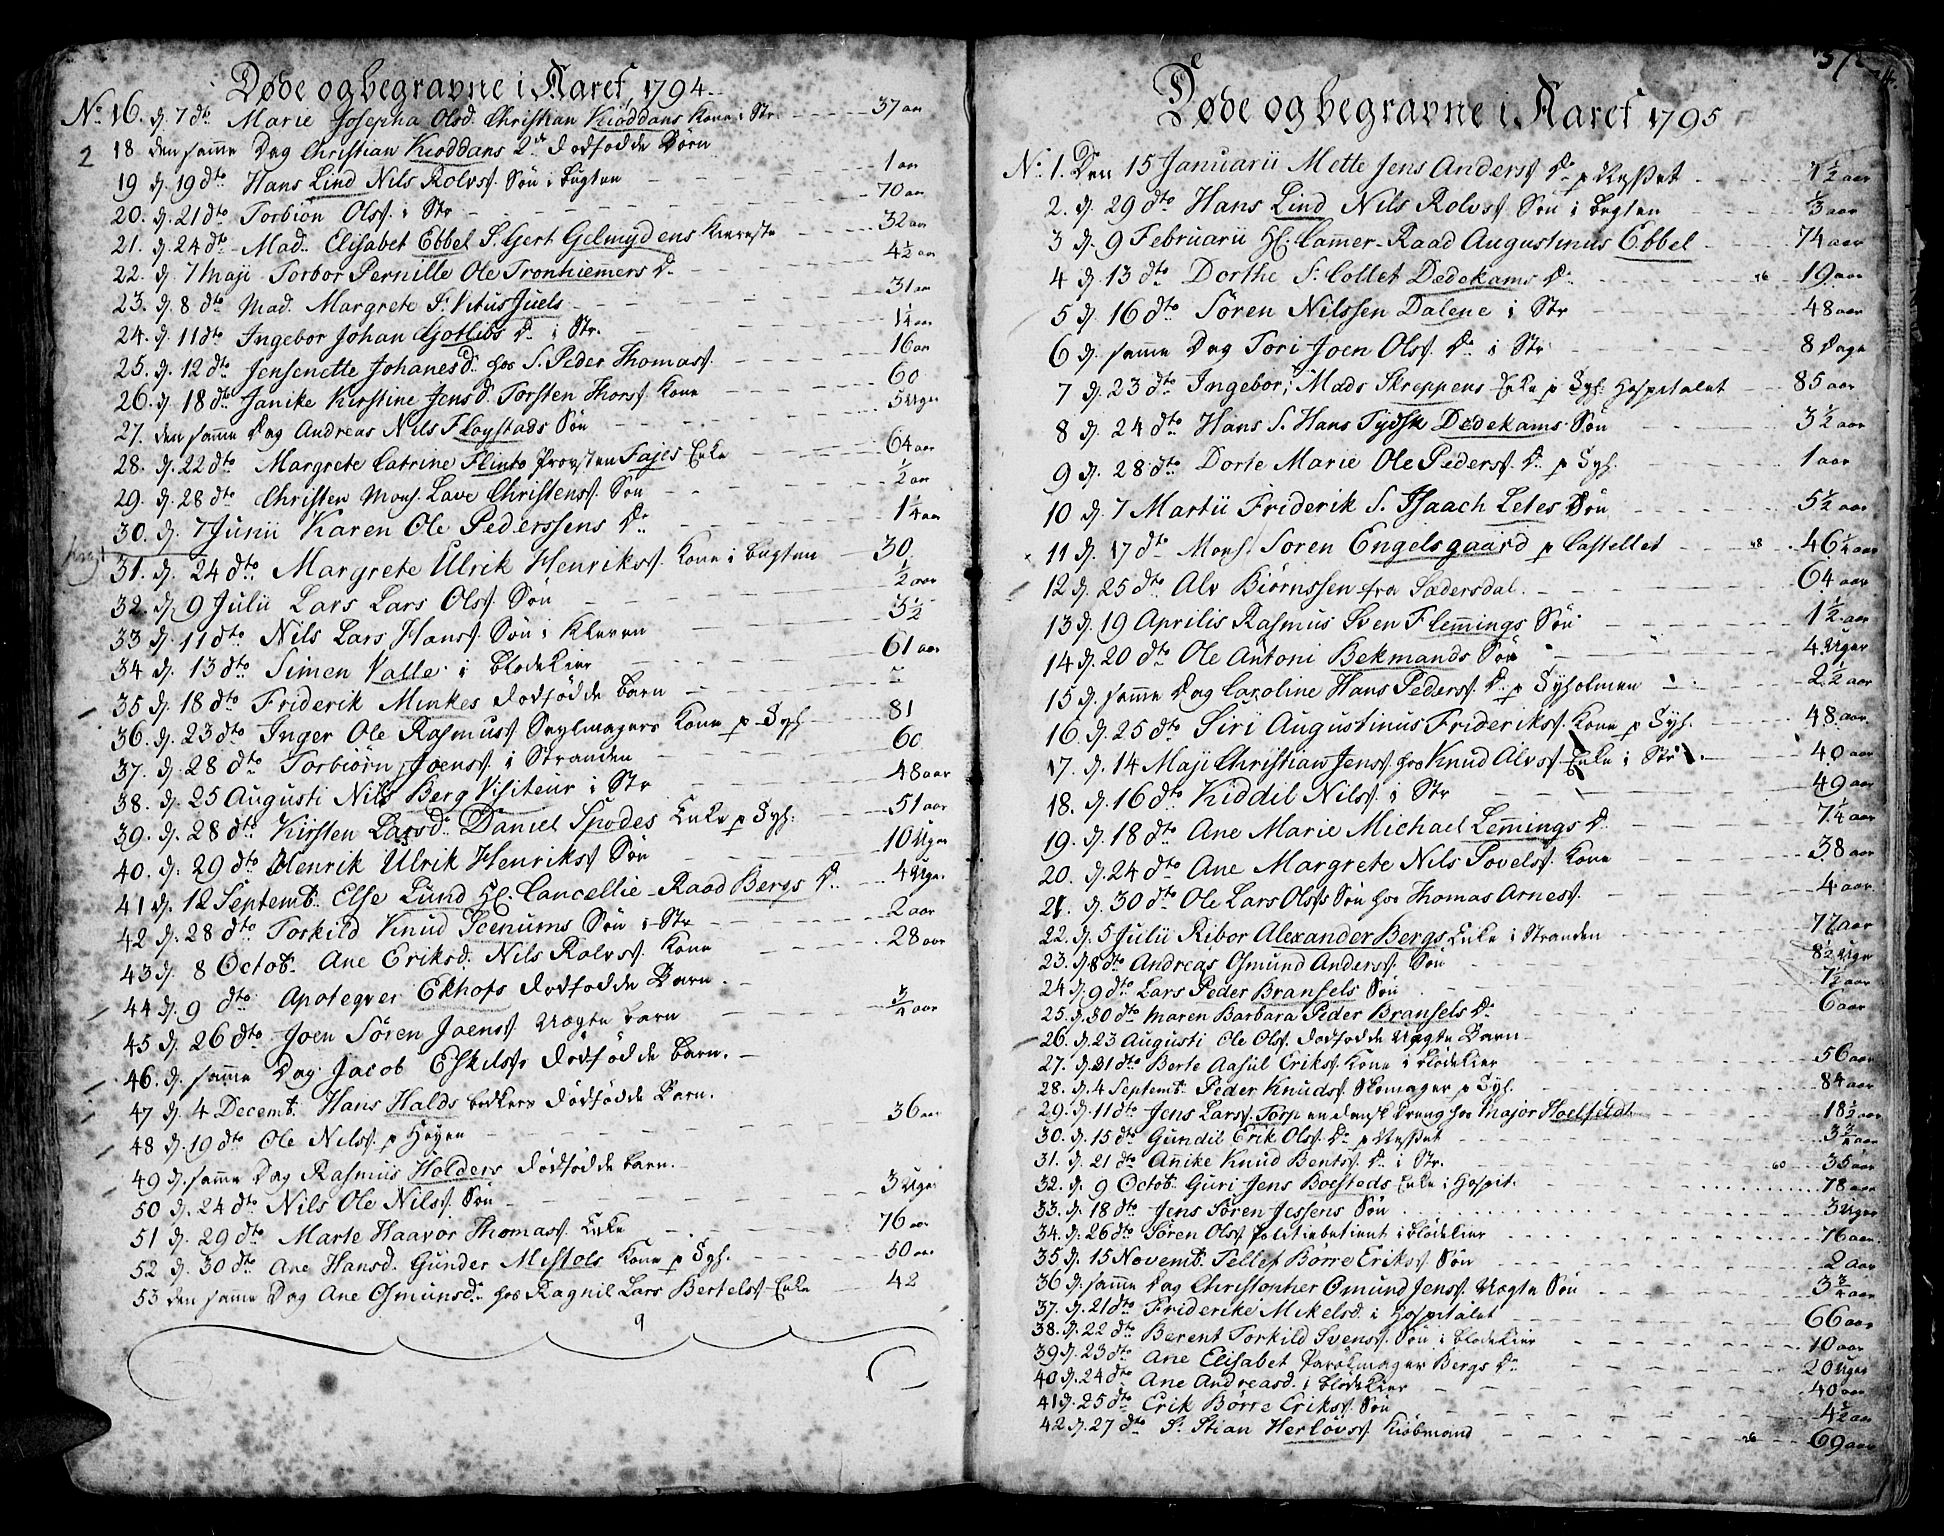 Døde og begravne i Aaret 1794
No 16. d. 7 dto Marie Josepha Olsd. Christian Kioddans Kone i Str. 37 aar
2 18 den samme Dag Christian Kioddans 2de dødfødde Børn
19 d. 19 dto Hans Lind Nils Rolvs. Søn i bugten 1 aar
20. d. 21 dto Torbiøn Ols. i Str 70 aar
21. d. 24 dto Mad. Elisabet Ebbel S. Gert Gelmÿdens Kiereste 32 aar
22. d. 7 Maji Torbor Pernille Ole Tronhiemers Dr 4½ aar
23. d. 8 dto Mad. Margrete S. Vitus Juels 31 aar
24. d. 11 dto Ingebor Johan Gotlibs Dr i Str. 1¼ aar
25. d. 12 dto Jensenette Johanesd. hos S. Peder Thomass. 16 aar
26. d. 18 dto Janike Kirstine Jensd. Torsten Thors. Kone 60
27. den samme Dag Andreas Nils Fløystads Søn 5 Uger
28. d. 22 dto Margrete Catrine Flinto Provsten Fajes Enke 64 aar
29. d. 28 dto Christen Mons. Lave Christens. Søn ½ aar
30. d. 7 Junii Karen Ole Pederssens Dr 1¼ aar
31. d. 24 dto Margrete Ulrik Henriks. Kone i bugten 30
32. d. 9 Julii Lars Lars Ols. Søn ½ aar
33 d. 11 dto Nils Lars Hans. Søn i Kleven 5½
34 d. 13 dto Simen Valle i blodekier 61 aar
35 d. 18 dto Friderik Minkes dødfødde barn
36. d. 23 dto Inger Ole Rasmus. Seylmagers Kone p Sÿh 81
37. d. 28 dto Torbiørn Joens. i Stranden 60
38. d. 25 Augusti Nils Berg Visiteur i Str 48 aar
39. d. 28 dto Kirsten Larsd. Daniel Spodes Enke p Sÿh. 51 aar
40. d. 29 dto Henrik Ulrik Henriks. Søn 10 Uger
41 d. 12 Septemb. Else Lund Hl. Cancellie-Raad Bergs Dr 4 Uger
42 d. 28 dto Torkild Knud Icenums Søn i Str 2 aar
43 d. 8 Octob. Ane Eriksd. Nils Rolvs. Kone 28 aar
44 d. 9 dto Apoteqver Ekhofs dødfødde Barn.
45 d. 26 dto Joen Søren Joens. Uægte barn ¾ aar
46. d. samme Dag Jacob Eskils. dødfødde barn.
47 d. 4 Decemb. Hans Halds bekkers dødfødde Barn.
48 d. 19 dto Ole Nils. p Høyen 36 aar
49 d. samme Dag Rasmus Holders dødfødde barn.
50 d. 24 dto Nils Ole Nils. Søn 3 Uger
51 d. 29 dto Marte Haavor Thomas. Enke 76 aar
52 d. 30 dto Ane Hansd. Gunder Mistols Kone p Sÿh. 50 aar
53 den samme Dag Ane Osmunsd. hos Ragnil Lars Bertels. Enke 42
9
Døde og begravne i Aaret 1795
No 1. Den 15 Januarii Mette Jens Anders. Dr p Næsset 1½ aar
2. d. 29 dto Hans Lind Nils Rolvs. Søn i bugten ⅓ aar
3 d. 9 Februarii Hl. Camer-Raad Augustinus Ebbel 74 aar
4 d. 13 dto Dorthe S. Collet Dedekams Dr 19 aar
5 d. 16 dto Søren Nilssen Dalene i Str 48 aar
6 d. samme Dag Tori Joen Ols. Dr i Str 8 Dage
7 d. 23 dto Ingebor, Mads Skreppens Enke p Sÿh. Hospitalet 85 aar
8 d. 24 dto Hans S. Hans Tydsk Dedekams Søn 3½ aar
9 d. 28 dto Dorte Marie Ole Peders. Dr p Sÿh. 1 aar
10 d. 7 Martii Friderik S. Isaach Letes Søn 5½ aar
11 d. 17 dto Mons. Søren Engelsgaard p Castellet 46¼ aar
12 d. 25 dto Alv Biørnssen fra Sædersdal 64 aar
13 d. 19 Aprilis Rasmus Sven Flemings Søn 1½ aar
14 d. 20 dto Ole Antoni Bekmands Søn 4 Uger
15 d. samme Dag Caroline Hans Peders. Dr p Sÿholmen 2½ aar
16. d. 25 dto Siri Augustinus Frideriks. Kone p Sÿh. 48 aar
17. d. 14 Maji Christian Jens. hos Knud Alvs. Enke i Str. 40 aar
18. d. 16 dto Kiddil Nils. i Str 49 aar
19. d. 18 dto Ane Marie Michael Lemmings Dr 7¼ aar
20. d. 24 dto Ane Margrete Nils Povels. Kone 38 aar
21. d. 30 dto Ole Lars Olss Søn hos Thomas Arnes. 4 aar
22. d. 5 Julii Ribor Alexander Bergs Enke i Stranden 77 aar
23. d. 8 dto Andreas Osmund Anders. Søn 8½ Uger
24 d. 9 dto Lars Peder Bransels Søn 7½ aar
25. d. 30 dto Maren Barbara Peder Bransels Dr 6 aar
26. d. 23 Augusti Ole Ols. dødfødde Uægte Barn
27. d. 31 dto Berte Aasül Eriks. Kone i blodekier 56 aar
28. d. 4 Septemb. Peder Knuds. Skomager p Sÿh. 84 aar
29. d. 11 dto Jens Lars. Torp en dansk Dreng hos Major Hoelfeldt 18½ aar
30. d. 15 dto Gundil Erik Ols. Dr p Næsset 3¾ aar
31. d. 21 dto Annike Knud Bents. Dr i Str. 60 35 aar
32. d. 9 Octob. Guri Jens Boesteds Enke i Hospit. 78 aar
33. d. 18 dto Jens Søren Jessens Søn 3 Uger
34. d. 26 dto Søren Ols. Politiebetient i blodekier 76 aar
35 d. 15 Novemb. Tellef Børre Eriks. Søn 2 aar
36 d. samme Dag Christopher Omund Jens. Uægte Søn 3¾ aar
37. d. 21 dto Friderike Mikelsd. i Hospitalet 66 aar
38. d. 22 dto Berent Torkild Svens. Søn i blodekier 10 aar
39 d. 23 dto Ane Elisabet Parolmager Bergs Dr 20 Uger
40 d. 24 dto Ane Andreasd. i blodekier 40 aar
41 d. 25 dto Erik Børre Eriks. Søn 4½ aar
42 d. 27 dto S. Stian Herløvs. Kiøbmand 26 69 aar